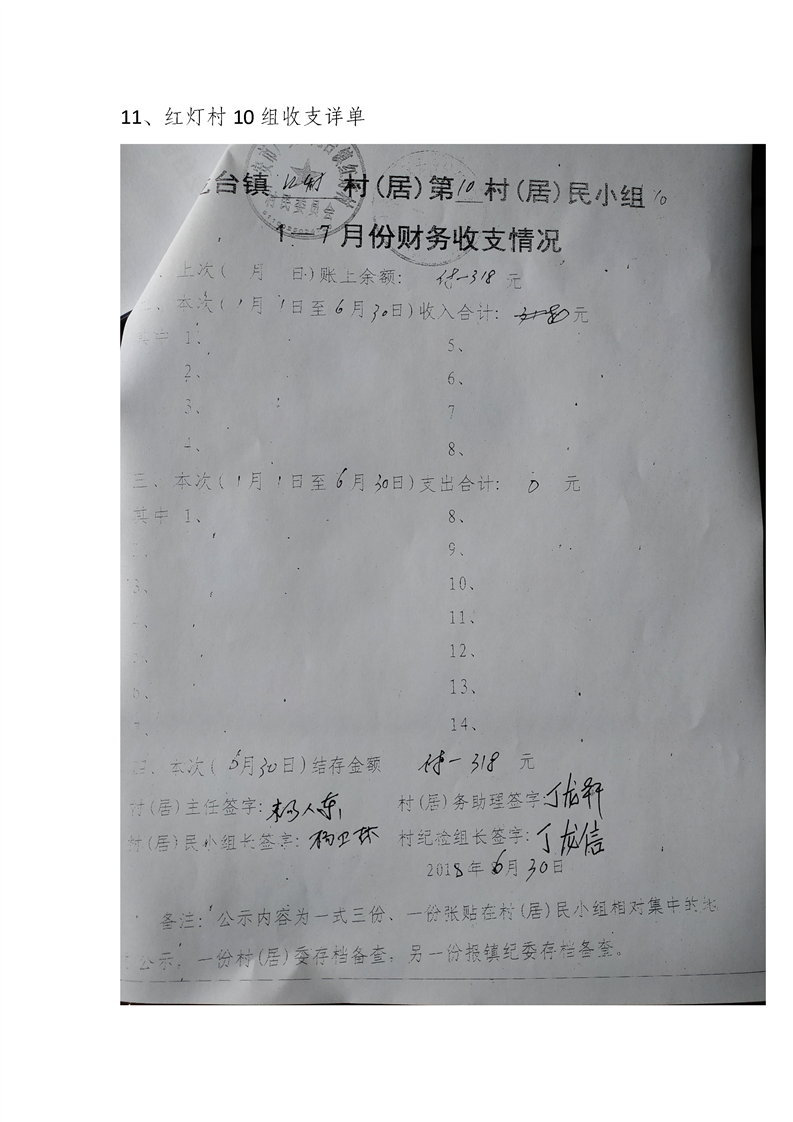 11、红灯村 10 组收支详单
台镇 村(居)第10村(居)民小组 10
村民委员会
1—7月份财务收支情况
上次( 月 日)账上余额: 结-318 元
本次(1月1日至6月30日)收入合计: 元
其中 1、 5、
2、 6、
3、 7
4、 8、
三、本次(1月1日至6月30日)支出合计: 0 元
其中 1、 8、
9、
3、 10、
11、
12、
6、 13、
14、
本次(6月30日)结存金额 结-318 元
村(居)主任签字: 村(居)务助理签字:
村(居)民小组长签字: 村纪检组长签字:丁龙信
2018年6月30日
备注:公示内容为一式三份、一份张贴在村(居)民小组相对集中的地
公示、一份村(居)委存档备查;另一份报镇纪委存档备查。